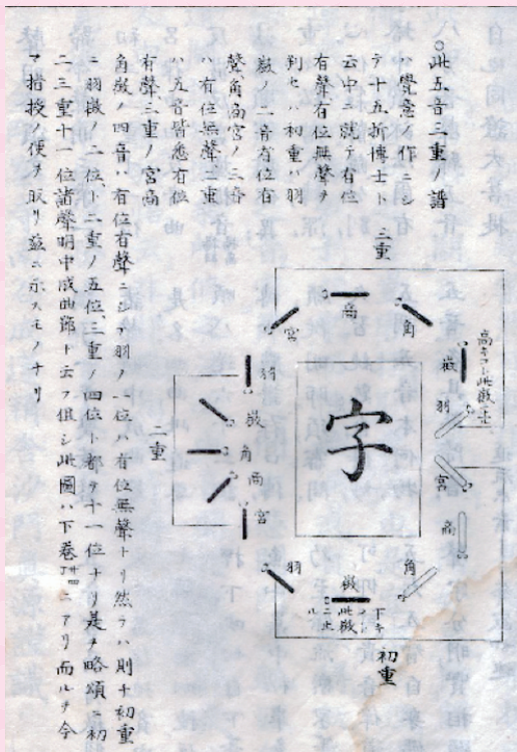 ○此五音三重ノ譜
ハ覺意ノ作ニシ
テ十五折博士ト
云中ニ就テ有位
有聲有位無聲ヲ
判セハ初重ハ羽
徵ノ二音有位有
聲角商宮ノ三音
ハ有位無聲二重
ハ五音皆悉有位
有聲三重ノ宮商
角徵ノ四音ハ有位有聲ニシテ羽ノ一位ハ有位無聲ナリ然ラハ則チ初重
ニ羽徵ノ二位ト二重ノ五位三重ノ四位ト都テ十一位ナリ是ヲ略頌ニ初
二三重十一位諸聲明中成曲節ト云フ但シ此圖ハ下卷
ニアリ而ルヲ今
マ指授ノ便ヲ取リ茲ニ示スモノナリ
三重
宮
商
角
徵
高キコト此徵ニ止ル
羽
宮
商
角
徵
下キコト此徵ニ止ル
羽
初重
二重
羽
徵
角
商
宮
字